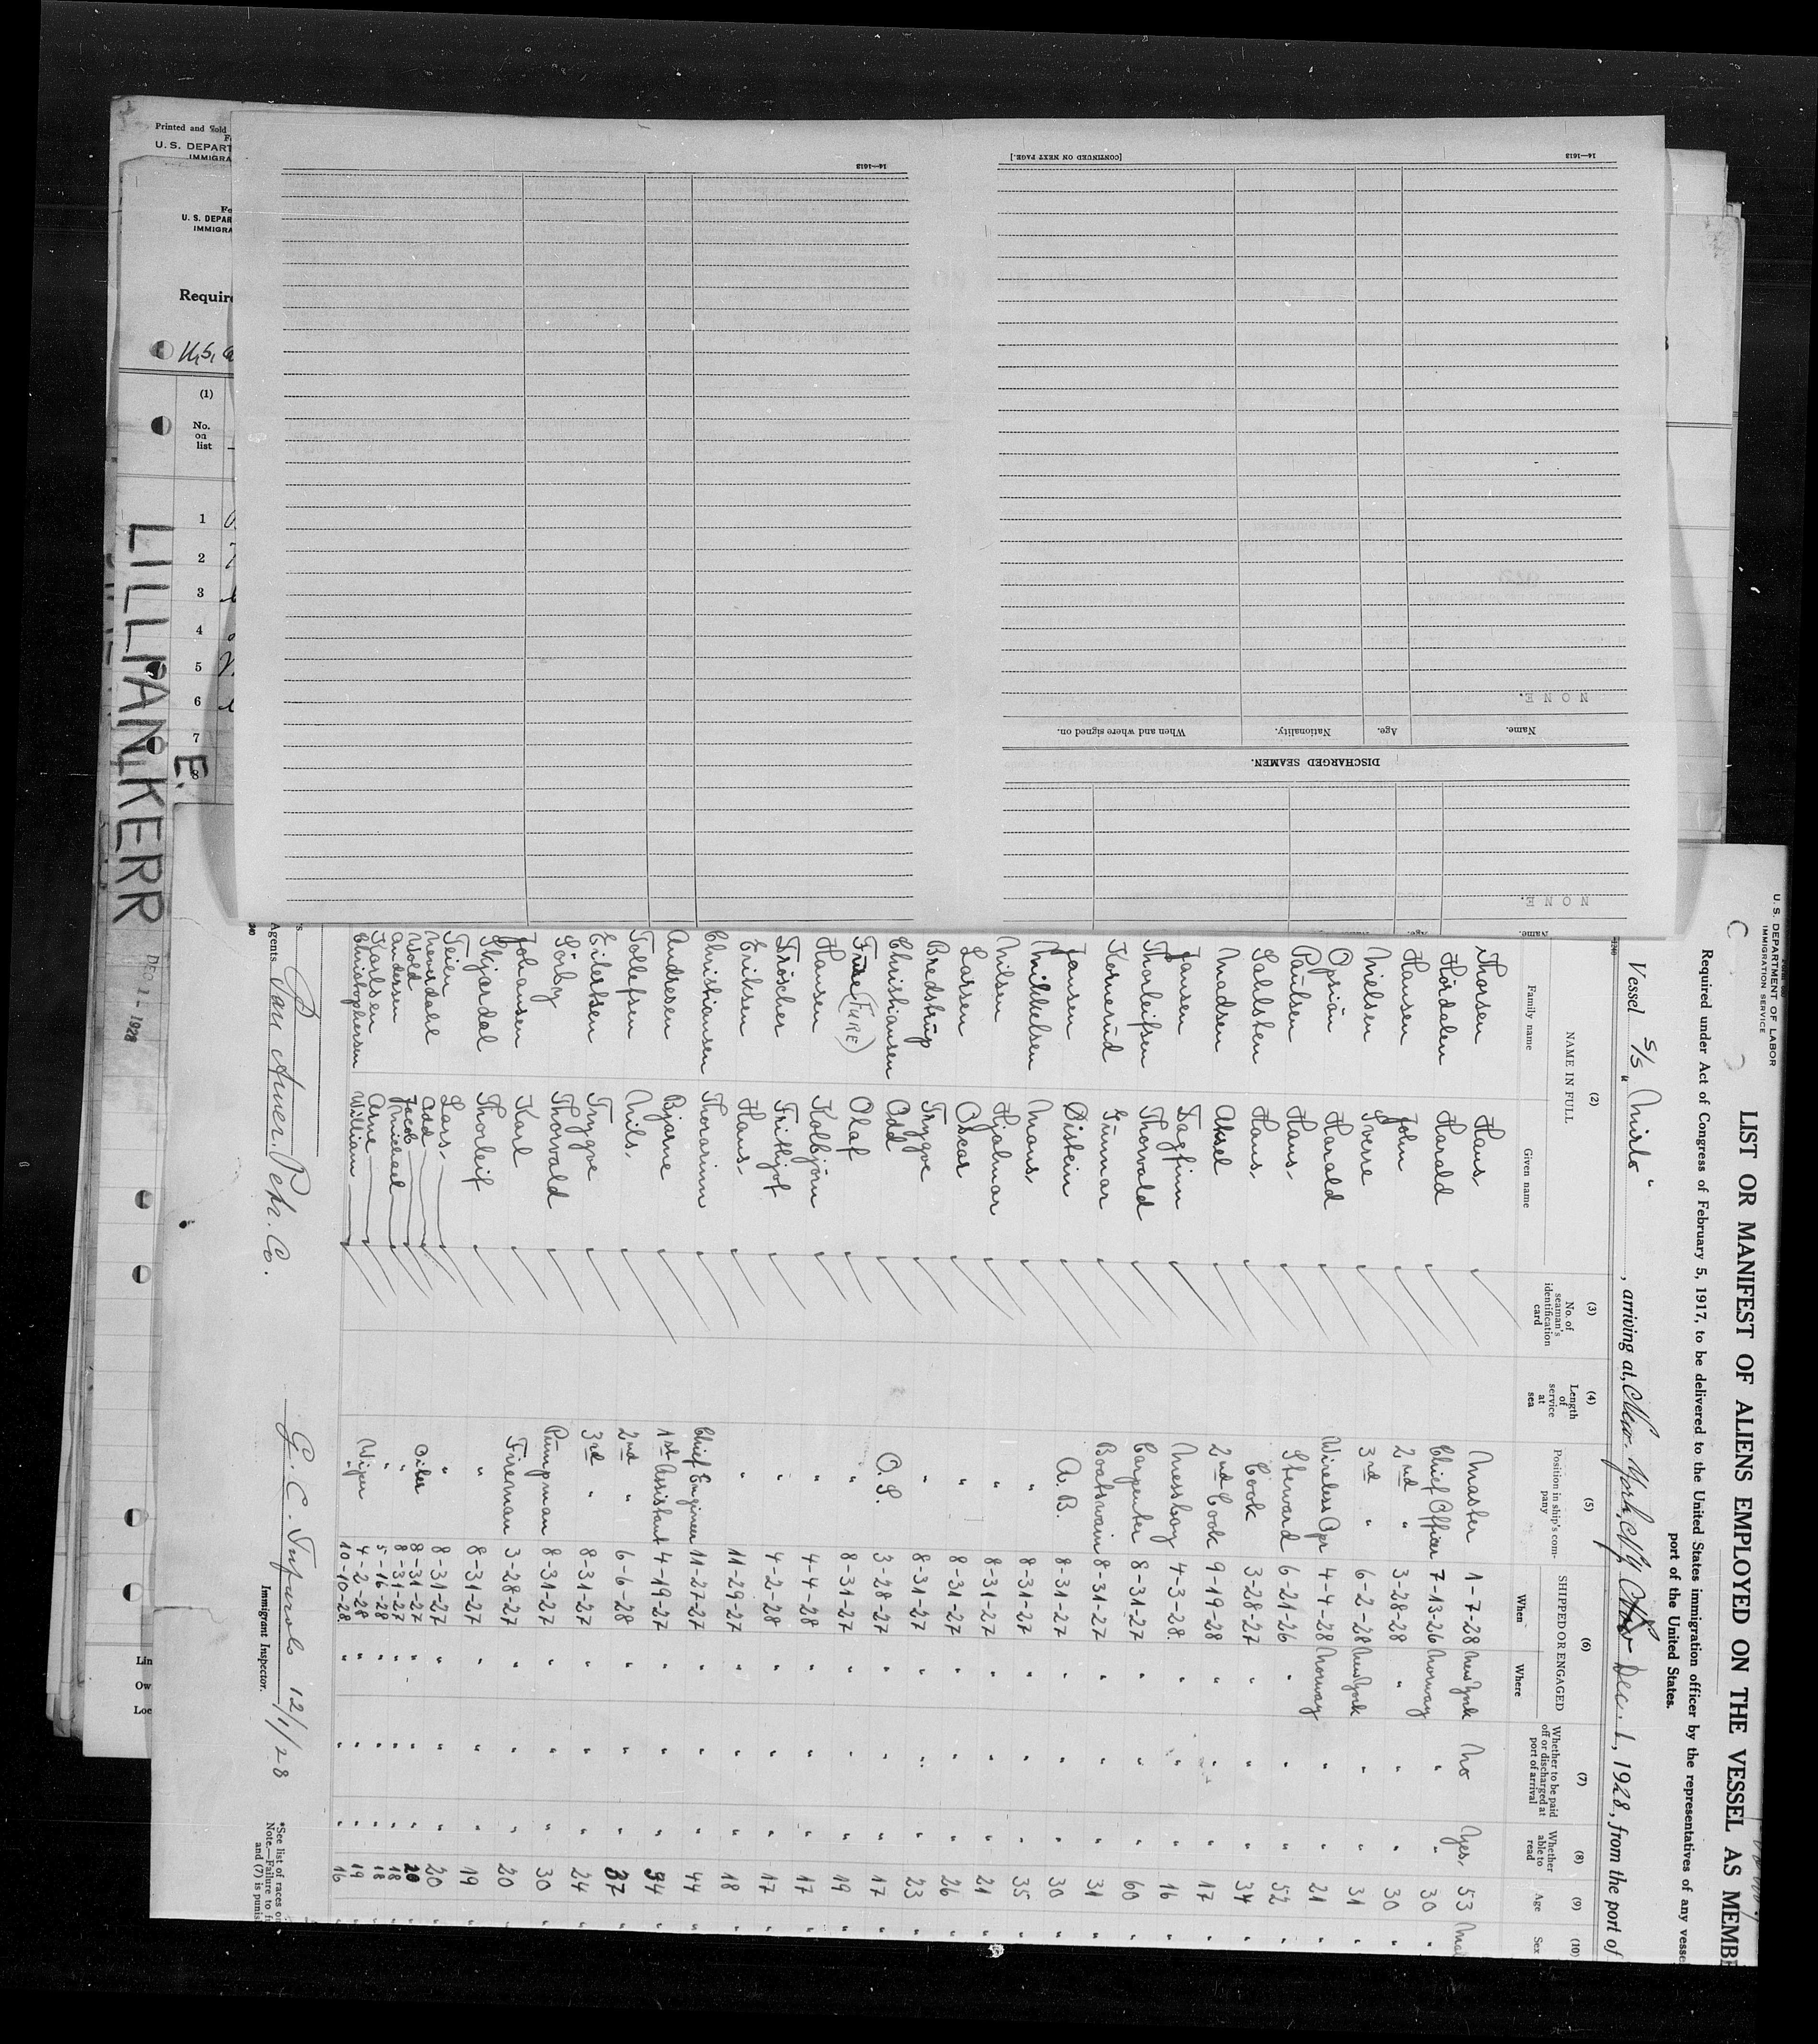 Printed and Sold
U. S. DEPART
IMMIGRA
U. S. DEPAR
IMMIGRA
Require
(1)
No. on list
1
2
3
4
5
6
7
8
LILLIAN E. KERR
14—1613
[CONTINUED ON NEXT PAGE.]
14—1613
NONE.
Name.
Age.
Nationality.
When and where signed on.
DISCHARGED SEAMEN.
NONE.
Name.
U. S. DEPARTMENT OF LABOR
IMMIGRATION SERVICE
LIST OR MANIFEST OF ALIENS EMPLOYED ON THE VESSEL AS MEMB
Required under Act of Congress of February 5, 1917, to be delivered to the United States immigration officer by the representatives of any vesse
port of the United States.
Vessel S/S "Mirlo", arriving at, New York, N.Y. Dec. 1, 1928, from the port of
(2) (3) (4) (5) (6) (7) (8) (9) (10)
NAME IN FULL
Family name
Given name
No. of seaman's identification card
Length of service at sea
Position in ship's company
SHIPPED OR ENGAGED
When
Where
Whether to be paid off or discharged at port of arrival
Whether able to read
Age
Sex
Thorsen Hans Master 1-7-28 New York No Yes 53
Hördalen Harald Chief Officer 7-13-26 Norway " " 30 "
Hansen John 2nd " 3-28-28 " " " 30 "
Nielsen Sverre 3rd " 6-2-28 New York " " 31 "
Opsiön Harald Wireless Opr 4-4-28 Norway " " 21 "
Paulsen Hans Steward 6-21-26 " " " 52 "
Sahlsten Hans Cook 3-28-27 " " " 34 "
Madsen Aksel 2nd Cook 9-19-28 " " " 17 "
Jansen Dagfinn Messboy 4-3-28 " " " 16 "
Thorleifsen Thorvald Carpenter 8-31-27 " " " 60 "
Kornerud Gunnar Boatswain 8-31-27 " " " 31 "
Jansen Öistein A. B. 8-31-27 " " " 30 "
Mikkelsen Mons " 8-31-27 " " " 35 "
Nilsen Hjalmar " 8-31-27 " " " 21 "
Larsen Oscar " 8-31-27 " " " 26 "
Bredstrup Trygve " 8-31-27 " " " 23 "
Christiansen Odd O. S. 3-28-27 " " " 17 "
Fure (FURE) Olaf " 8-31-27 " " " 19 "
Hansen Kolbjörn " 4-4-28 " " " 17 "
Tröscher Frithjof " 4-2-28 " " " 17 "
Eriksen Hans " 11-29-27 " " " 18 "
Christiansen Thorarinn Chief Engineer 11-27-27 " " " 44 "
Andresen Bjarne 1st Assistant 4-19-27 " " " 34 "
Tollefsen Nils 2nd " 6-6-28 " " " 37 "
Eilertsen Trygve 3rd " 8-31-27 " " " 24 "
Sörby Thorvald Pumpman 8-31-27 " " " 30 "
Johansen Karl Fireman 3-28-27 " " " 20 "
Skjærdal Thorleif " 8-31-27 " " " 19 "
Teien Lars " 8-31-27 " " " 20 "
Neverdahl Odd Oiler 8-31-27 " " " 20 "
Wold Jacob " 8-31-27 " " " 18 "
Andersen Michael " 5-16-28 " " " 18 "
Karlsen Arne Wiper 4-2-28 " " " 19 "
Christophersen William " 10-10-28 " " " 16 "
DEC 1 - 1928
Agents Pan Amer. Petr. Co.
12/1/28
Immigrant Inspector.
*See list of races o
Note.—Failure to fu
and (7) is punis
Lin
Ow
Loc